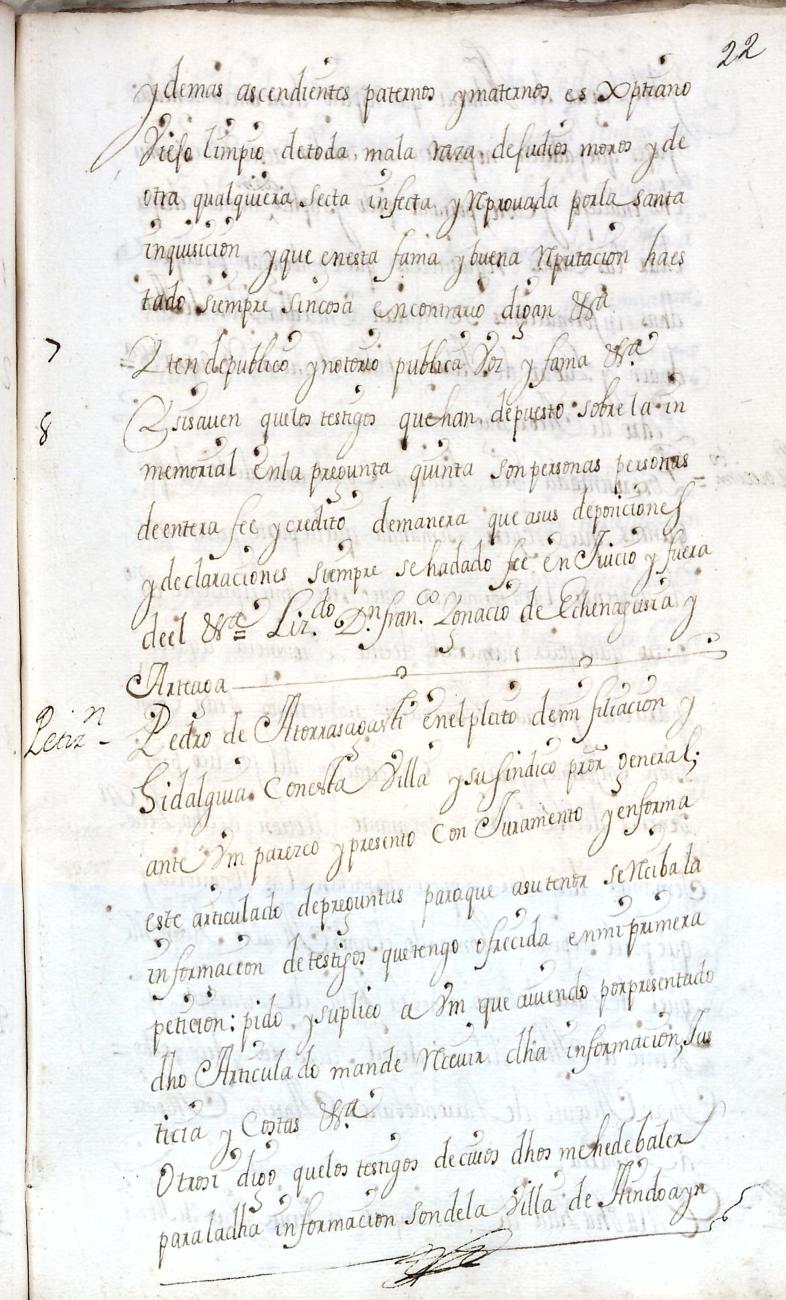 22
y demas ascendientes paternos y maternos es Xptiano
Viejo limpio de toda mala raza de judios moros y de
otra qualquiera secta infecta y Reprovada por la santa
inquisicion y que en esta fama y buena Reputacion ha es
tado siempre sin cosa en contrario digan &ª
7 Iten de publico y notorio publica Voz y fama &ª
8 Si saven que los testigos que han depuesto sobre la in
memorial en la pregunta quinta son personas personas
de entera fee y credito de manera que a sus deposiciones
y declaraciones siempre se ha dado fee en Juicio y fuera
de el &ª Lizdo Dn Franco Ignacio de Echenagusia y
Arteaga
Petizn Pedro de Atorrasagasti en el pleito de mi filiacion y
hidalguia con esta Villa y su sindico pror general;
ante Vm parezco y presento con Juramento y en forma
este articulado de preguntas para que a su tenor se Reciba la
informacion de testigos que tengo ofrecida en mi primera
peticion; pido y suplico a Vm que aviendo por presentado
dho Articulado mande Recevir dha informacion, Jus
ticia y Costas &ª
Otrosi digo que los testigos de cuios dhos me he de baler
para la dha informacion son de la Villa de Andoayn